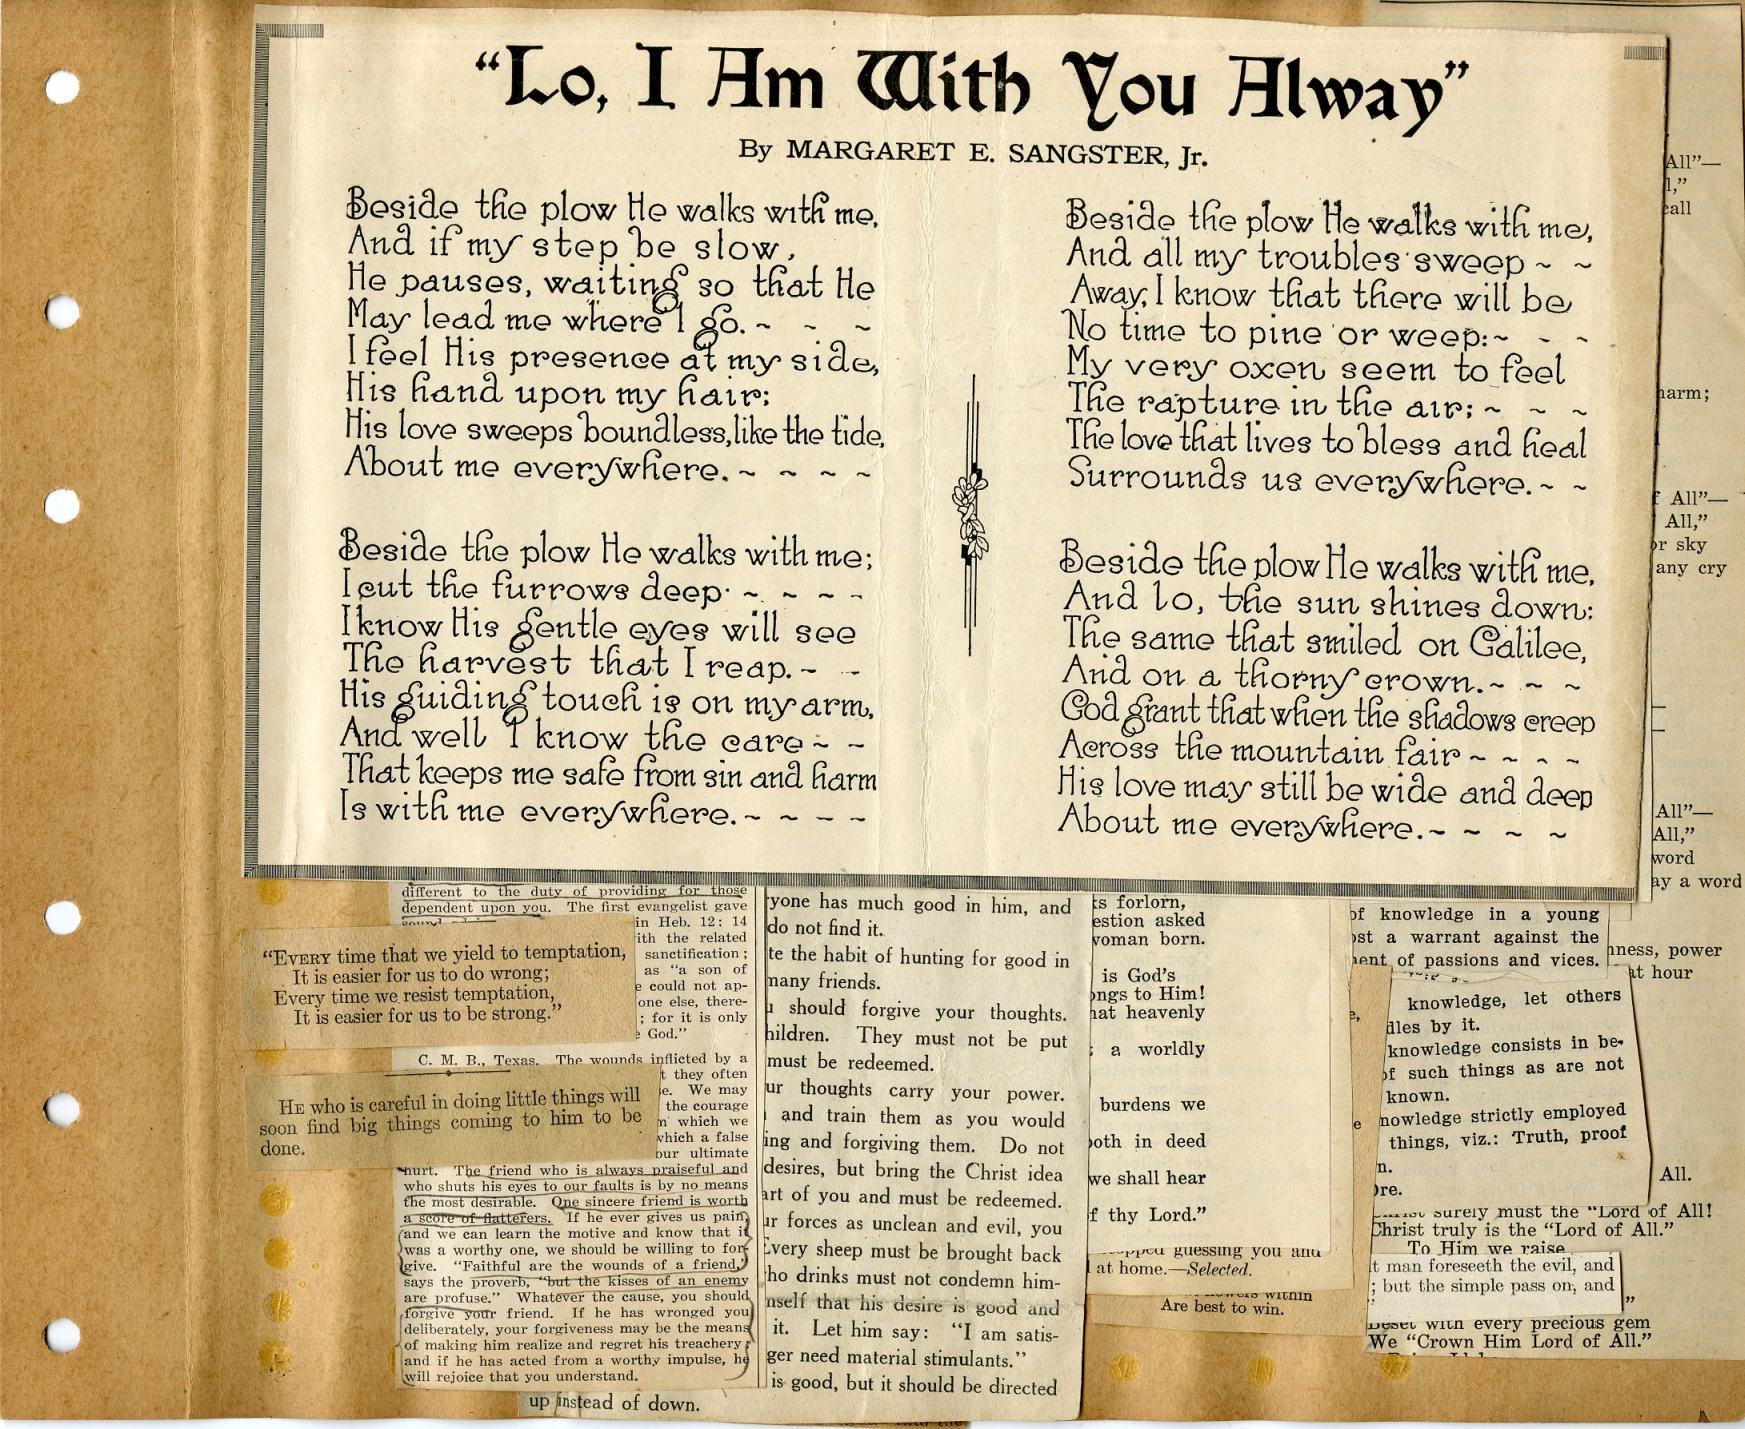 “Lo, I Am With You Alway”
By MARGARET E. SANGSTER, Jr.
Beside the plow He walks with me,
And if my step be slow,
He pauses, waiting so that He
May lead me where I go. ~ ~ ~
I feel His presence at my side,
His hand upon my hair;
His love sweeps boundless, like the tide,
About me everywhere. ~ ~ ~ ~
Beside the plow He walks with me;
I cut the furrows deep ~ ~ ~ ~
I know His gentle eyes will see
The harvest that I reap. ~ ~
His guiding touch is on my arm,
And well I know the care ~ ~
That keeps me safe from sin and harm
Is with me everywhere. ~ ~ ~ ~
Beside the plow He walks with me,
And all my troubles sweep ~ ~
Away, I know that there will be
No time to pine or weep: ~ ~ ~
My very oxen seem to feel
The rapture in the air; ~ ~ ~
The love that lives to bless and heal
Surrounds us everywhere. ~ ~
Beside the plow He walks with me,
And lo, the sun shines down:
The same that smiled on Galilee,
And on a thorny crown. ~ ~ ~
God grant that when the shadows creep
Across the mountain fair ~ ~ ~ ~
His love may still be wide and deep
About me everywhere. ~ ~ ~ ~
different to the duty of providing for those
dependent upon you. The first evangelist gave
in Heb. 12: 14
ith the related
sanctification;
as “a son of
e could not ap-
one else, there-
; for it is only
God.”
“EVERY time that we yield to temptation,
It is easier for us to do wrong;
Every time we resist temptation,
It is easier for us to be strong.”
C. M. B., Texas. The wounds inflicted by a
t they often
e. We may
the courage
which we
which a false
our ultimate
HE who is careful in doing little things will
soon find big things coming to him to be
done.
hurt. The friend who is always praiseful and
who shuts his eyes to our faults is by no means
the most desirable. One sincere friend is worth
a score of flatterers. If he ever gives us pain,
and we can learn the motive and know that it
was a worthy one, we should be willing to for-
give. “Faithful are the wounds of a friend,”
says the proverb, “but the kisses of an enemy
are profuse.” Whatever the cause, you should
forgive your friend. If he has wronged you
deliberately, your forgiveness may be the means
of making him realize and regret his treachery;
and if he has acted from a worthy impulse, he
will rejoice that you understand.
yone has much good in him, and
do not find it.
te the habit of hunting for good in
many friends.
u should forgive your thoughts.
hildren. They must not be put
must be redeemed.
ur thoughts carry your power.
and train them as you would
ing and forgiving them. Do not
desires, but bring the Christ idea
art of you and must be redeemed.
ur forces as unclean and evil, you
Every sheep must be brought back
ho drinks must not condemn him-
nself that his desire is good and
it. Let him say: “I am satis-
ger need material stimulants.”
is good, but it should be directed
up instead of down.
ks forlorn,
estion asked
woman born.
is God's
ongs to Him!
hat heavenly
; a worldly
burdens we
oth in deed
we shall hear
f thy Lord.”
guessing you and
at home.—Selected.
within
Are best to win.
of knowledge in a young
ost a warrant against the
ent of passions and vices.
knowledge, let others
dles by it.
knowledge consists in be-
of such things as are not
known.
nowledge strictly employed
things, viz.: Truth, proof
n.
ore.
surely must the “Lord of All!
Christ truly is the “Lord of All.”
To Him we raise
t man foreseeth the evil, and
; but the simple pass on, and
”
Beset with every precious gem
We “Crown Him Lord of All.”
All”—
l,”
call
harm;
f All”—
All,”
or sky
any cry
All”—
All,”
word
ay a word
ness, power
at hour
All.